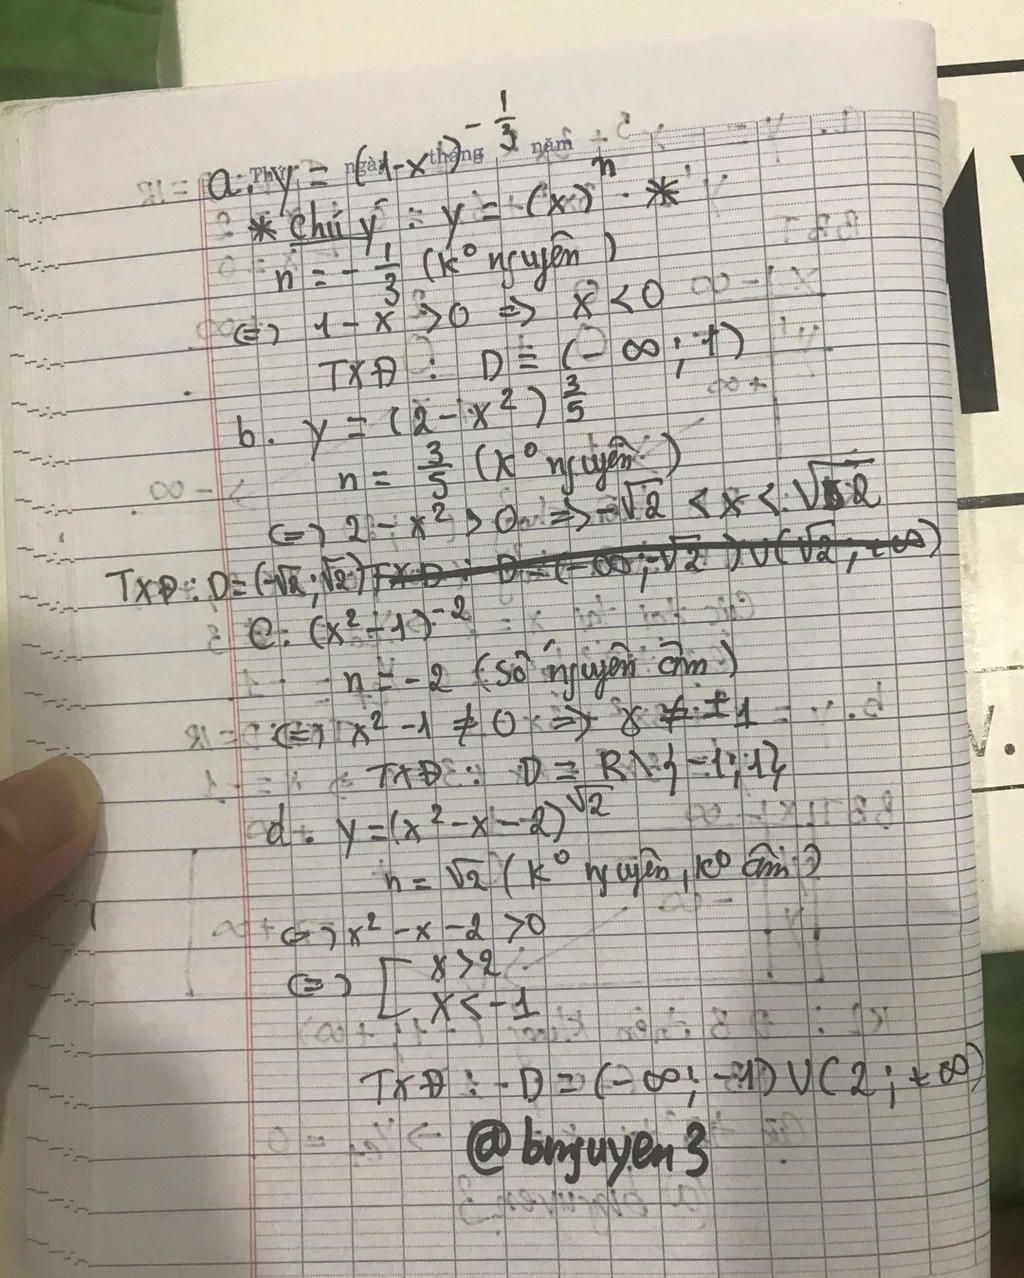 Thứ ngày tháng năm
a. y = (1-x)^{-1/3}
* Chú ý : y = (x)^n . *
n = -1/3 (k° nguyên)
<=> 1 - x > 0 => x < 0
TXĐ : D = (-∞ ; 1)
b. y = (2 - x²)^{3/5}
n = 3/5 (k° nguyên)
<=> 2 - x² > 0 => -√2 < x < √2
TXĐ : D = (-√2 ; √2) TXĐ : D = (-∞ ; -√2) ∪ (√2 ; +∞)
c. (x² - 1)^{-2}
n = -2 (số nguyên âm)
<=> x² - 1 ≠ 0 => x ≠ ±1
TXĐ : D = R \ {-1 ; 1}
d. y = (x² - x - 2)^{√2}
n = √2 (k° nguyên, k° âm)
<=> x² - x - 2 > 0
<=> [ x > 2
x < -1
TXĐ : D = (-∞ ; -1) ∪ (2 ; +∞)
@bnguyen3